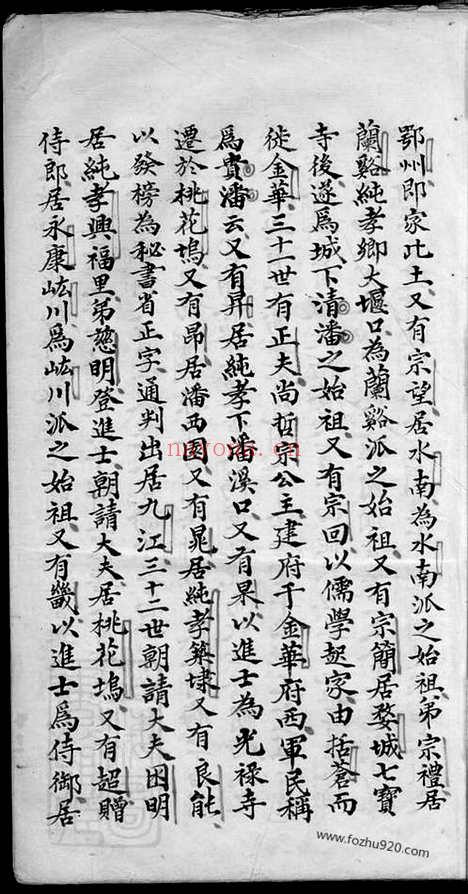 鄂州即家此土又有宗望居水南為水南派之始祖弟宗禮居
蘭谿純孝鄉大堰口為蘭谿派之始祖又有宗簡居婺城七寶
寺後遂為城下清潘之始祖又有宗回以儒學起家由括蒼而
徙金華三十一世有正夫尚哲宗公主建府于金華府西軍民稱
為貴潘云又有昇居純孝下潘溪口又有杲以進士為光祿寺
遷於桃花塢又有昂居潘西園又有晁居純孝築埭又有良能
以發榜為秘書省正字通判出居九江三十二世朝請大夫困明
居純孝興福里弟慈明登進士朝請大夫居桃花塢又有超贈
侍郎居永康峴川為峴川派之始祖又有畿以進士為侍御居
nayona.cn
www.fozhu920.com